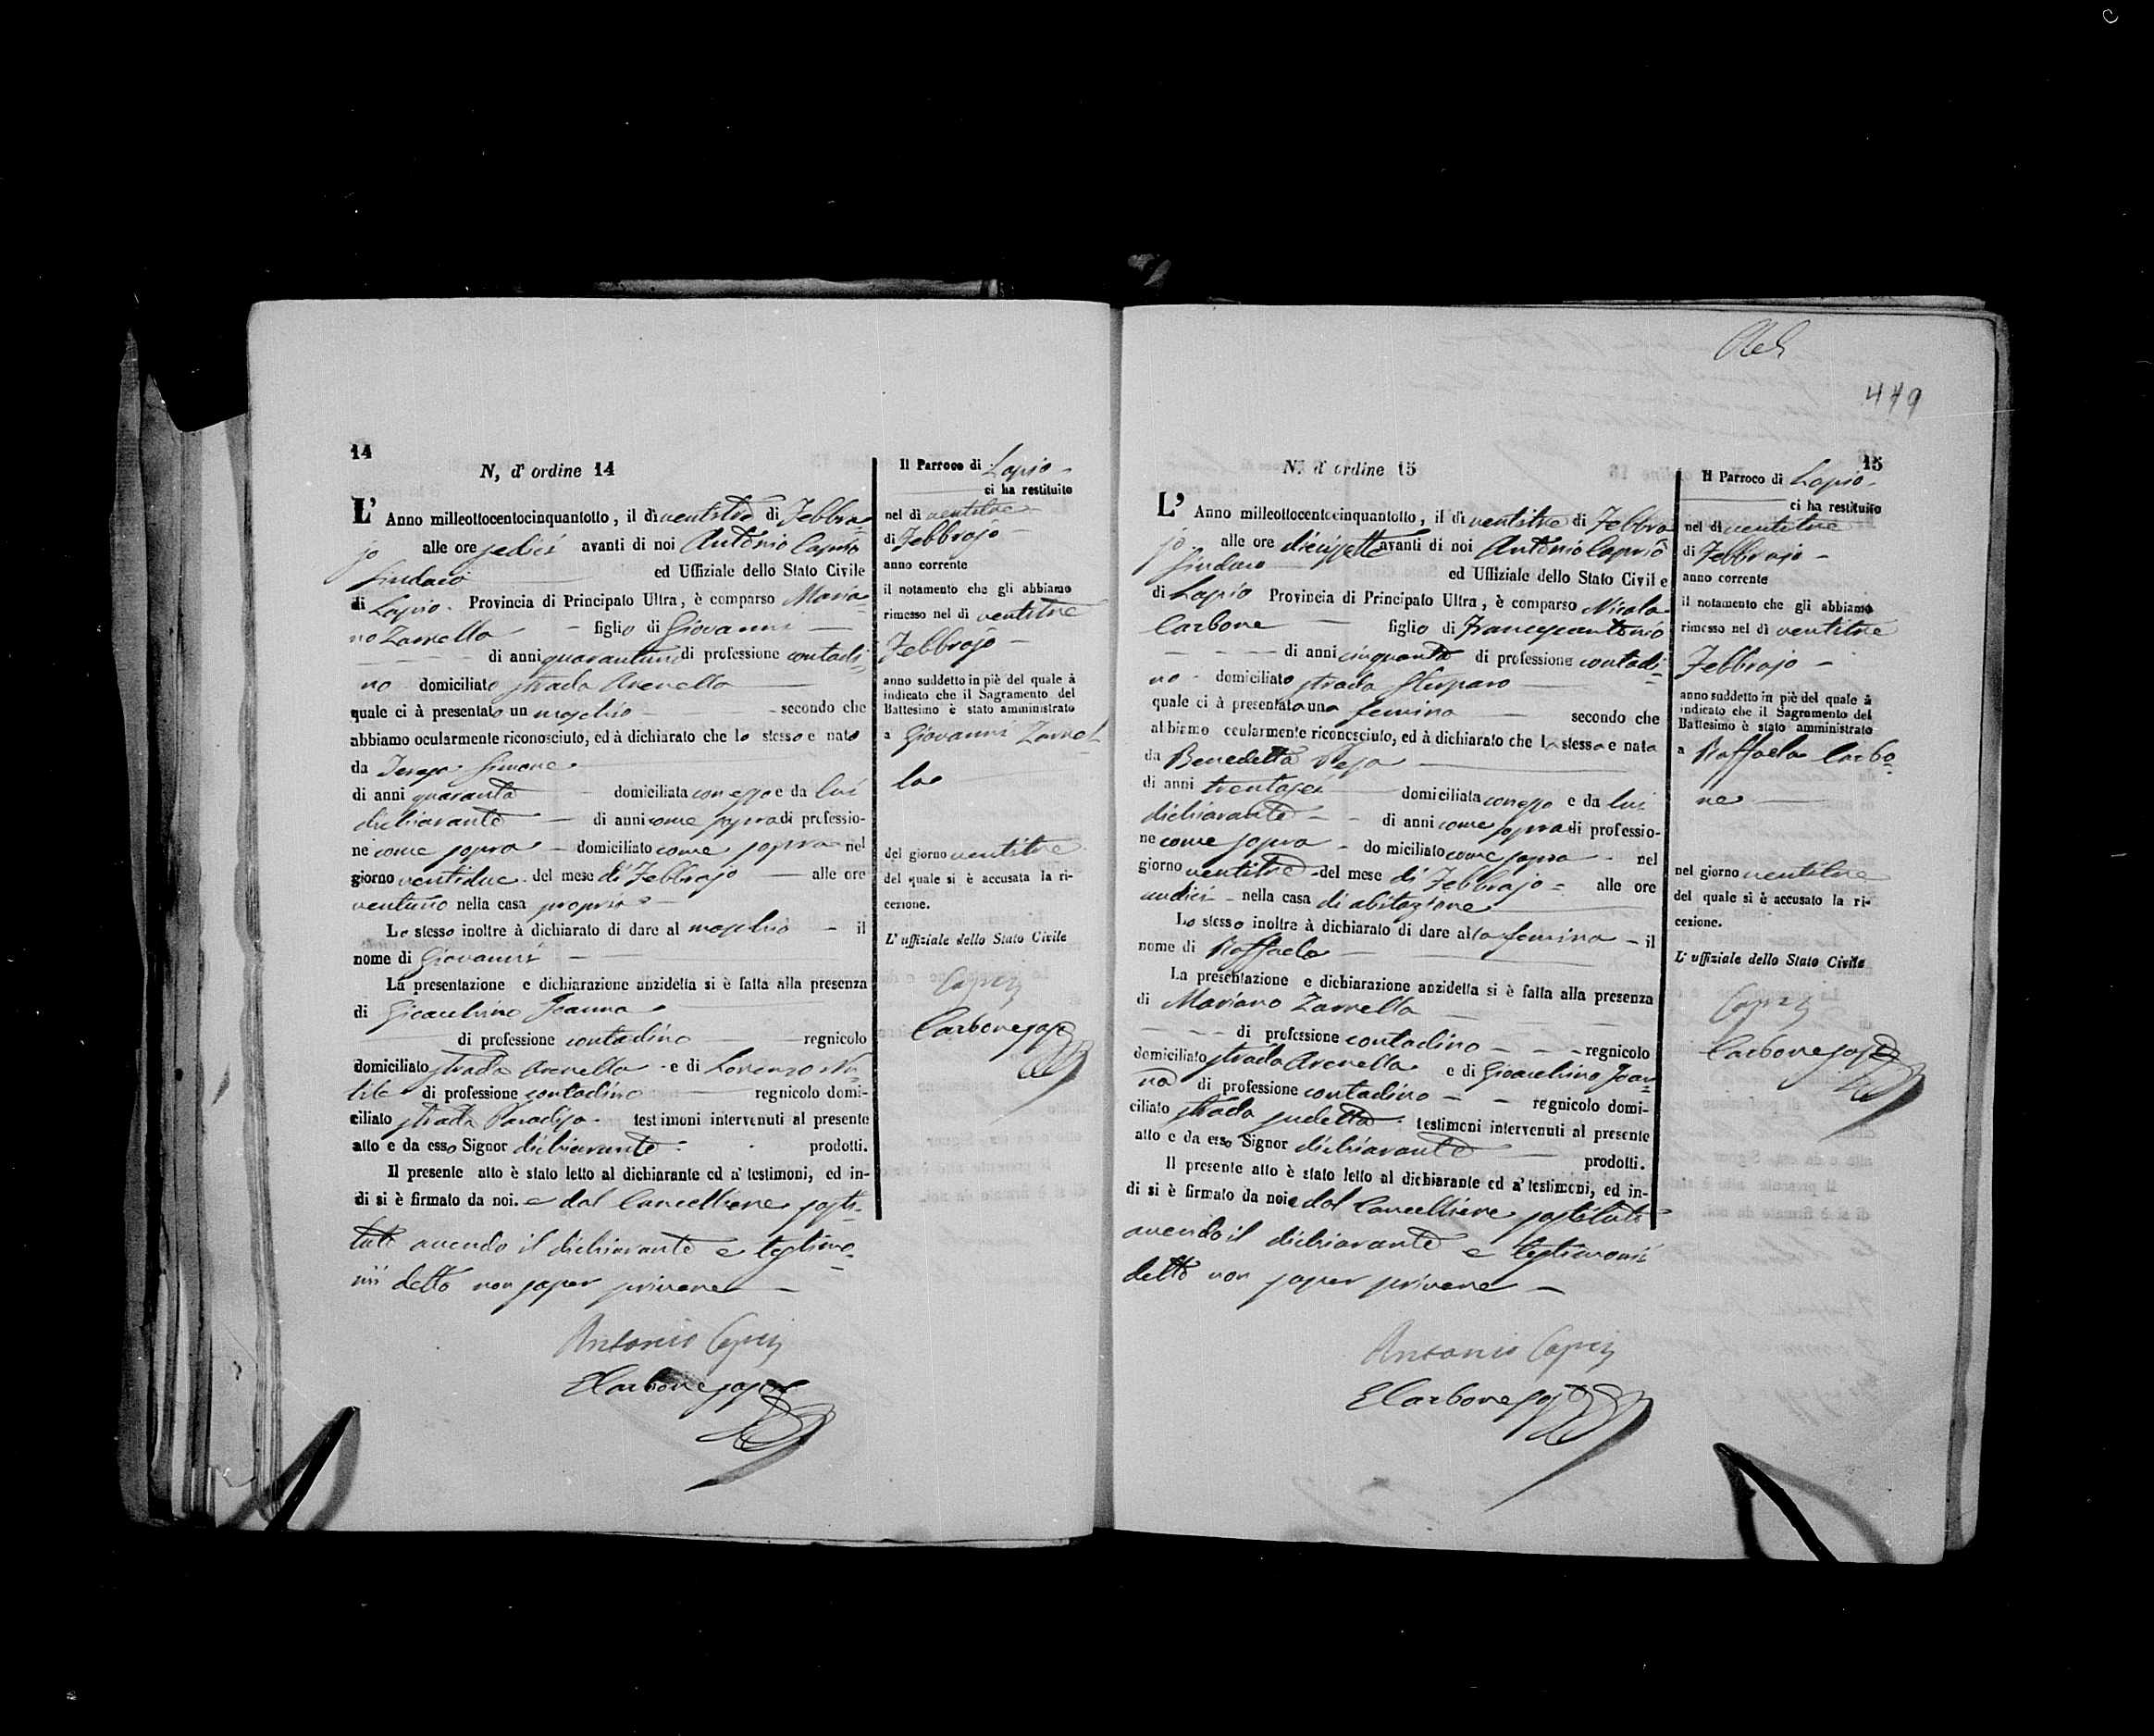 14
N, d' ordine 14
L' Anno milleottocentocinquantotto, il dì ventitre di Febbra=
jo alle ore sedici avanti di noi Antonio Caprio
Sindaco ed Uffiziale dello Stato Civile
di Lapio. Provincia di Principato Ultra, è comparso Maria=
no Zarrella figlio di Giovanni
di anni quarantuno di professione contadi=
no domiciliato strada Arenella
quale ci à presentato un maschio secondo che
abbiamo ocularmente riconosciuto, ed à dichiarato che lo stesso e nato
da Teresa Simone
di anni quaranta domiciliata con esso e da lui
dichiarante di anni come sopra di professio-
ne come sopra domiciliato come sopra nel
giorno ventidue del mese di Febbrajo alle ore
ventuno nella casa propria
Lo stesso inoltre à dichiarato di dare al maschio il
nome di Giovanni
La presentazione e dichiarazione anzidetta si è fatta alla presenza
di Gioacchino Joanna
di professione contadino regnicolo
domiciliato strada Arenella e di Lorenzo
di professione contadino regnicolo domi-
ciliato strada Paradiso testimoni intervenuti al presente
atto e da esso Signor dichiarante prodotti.
Il presente atto è stato letto al dichiarante ed a' testimoni, ed in-
di si è firmato da noi. e dal Cancelliere sosti=
tuto avendo il dichiarante e testimo=
nii detto non saper scrivere
Antonio Caprio
Carbone
Il Parroco di Lapio
ci ha restituito
nel dì ventitre
di Febbrajo
anno corrente
il notamento che gli abbiamo
rimesso nel dì ventitre
Febbrajo
anno suddetto in piè del quale à
indicato che il Sagramento del
Battesimo è stato amministrato
a Giovanni Zarrel=
la
del giorno ventitre
del quale si è accusata la ri-
cezione.
L' uffiziale dello Stato Civile
Caprio
Carbone
449
15
N. d' ordine 15
L' Anno milleottocentocinquantotto, il dì ventitre di Febbra
jo alle ore diecisette avanti di noi Antonio Caprio
Sindaco ed Uffiziale dello Stato Civile
di Lapio Provincia di Principato Ultra, è comparso Nicola
Carbone figlio di Francescantonio
di anni cinquanta di professione contadi=
no domiciliato strada
quale ci à presentata una femina secondo che
abbiamo ocularmente riconosciuto, ed à dichiarato che la stessa e nata
da Benedetta
di anni trentasei domiciliata con esso e da lui
dichiarante di anni come sopra di professio-
ne come sopra domiciliato come sopra nel
giorno ventitre del mese di Febbrajo alle ore
undici nella casa di abitazione
Lo stesso inoltre à dichiarato di dare alla femina il
nome di Raffaela
La presentazione e dichiarazione anzidetta si è fatta alla presenza
di Mariano Zarrella
di professione contadino regnicolo
domiciliato strada Arenella e di Gioacchino Joan=
na di professione contadino regnicolo domi-
ciliato strada sudetta testimoni intervenuti al presente
atto e da esso Signor dichiarante prodotti.
Il presente atto è stato letto al dichiarante ed a' testimoni, ed in-
di si è firmato da noi e dal Cancelliere sostituto
avendo il dichiarante e testimonii
detto non saper scrivere
Antonio Caprio
Carbone
Il Parroco di Lapio
ci ha restituito
nel dì ventitre
di Febbrajo
anno corrente
il notamento che gli abbiamo
rimesso nel dì ventitre
Febbrajo
anno suddetto in piè del quale à
indicato che il Sagramento del
Battesimo è stato amministrato
a Raffaela Carbo=
ne
nel giorno ventitre
del quale si è accusato la ri-
cezione.
L' uffiziale dello Stato Civile
Caprio
Carbone